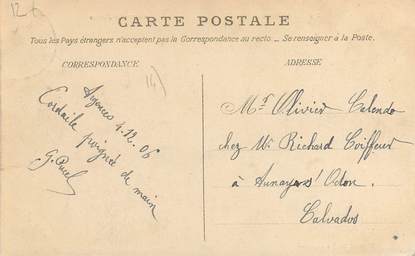 12
CARTE POSTALE
Tous les Pays étrangers n'acceptent pas la Correspondance au recto. — Se renseigner à la Poste.
CORRESPONDANCE
14)
4.12.06
Cordiale
poignée
de main
G.
ADRESSE
Mr Olivier
chez Mr Richard Coiffeur
à Aunay s/ Odon.
Calvados